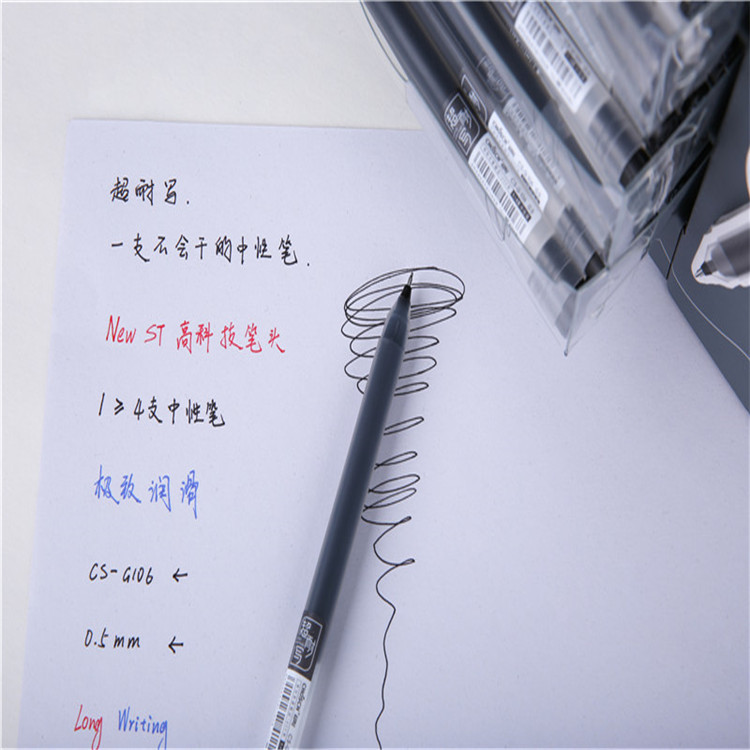 超耐写.
一支不会干的中性笔.
New ST 高科技笔头
1≥4支中性笔
极致润滑
CS-G106 ←
0.5mm ←
Long Writing
超耐写